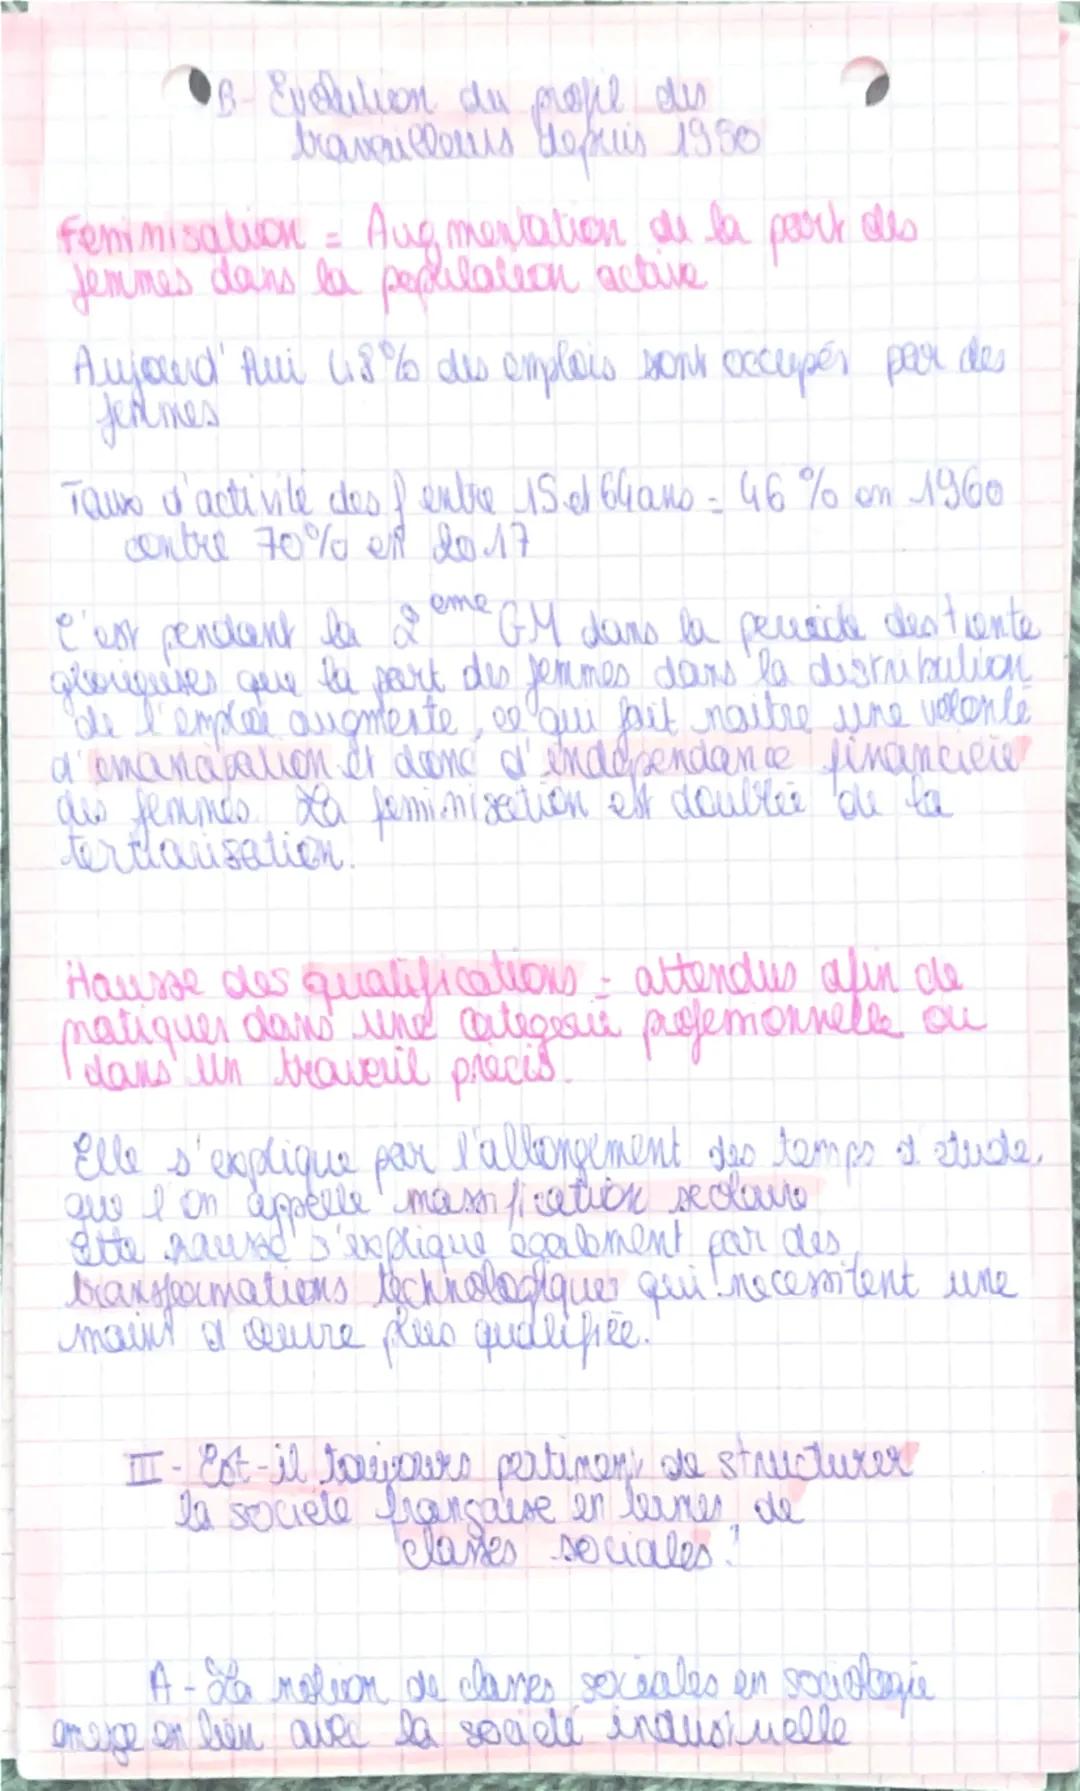 B- Evolution du profil des
travailleurs depuis 1950
Feminisation = Augmentation de la part des
femmes dans la population active
Aujourd'hui 48% des emplois sont occupés par des
femmes
Taux d'activité des f entre 15 et 64 ans = 46 % en 1960
contre 70% en 2017
C'est pendant la 2 eme GM dans la periode des trente
glorieuses que la part des femmes dans la distribution
de l'emploi augmente, ce qui fait naitre une volonté
d'emancipation et donc d'independance financière
des femmes. La feminisation est doublée de la
tertiarisation.
Hausse des qualifications = attendus afin de
pratiquer dans une categorie professionnelle ou
dans un travail précis.
Elle s'explique par l'allongement des temps d'etude,
que l'on appelle massification scolaire
Cette hausse s'explique egalement par des
transformations technologiques qui necessitent une
main d'œuvre plus qualifiée.
II - Est-il toujours pertinent de structurer
la société française en termes de
classes sociales ?
A - La notion de classes sociales en sociologie
emerge en lien avec la société industrielle